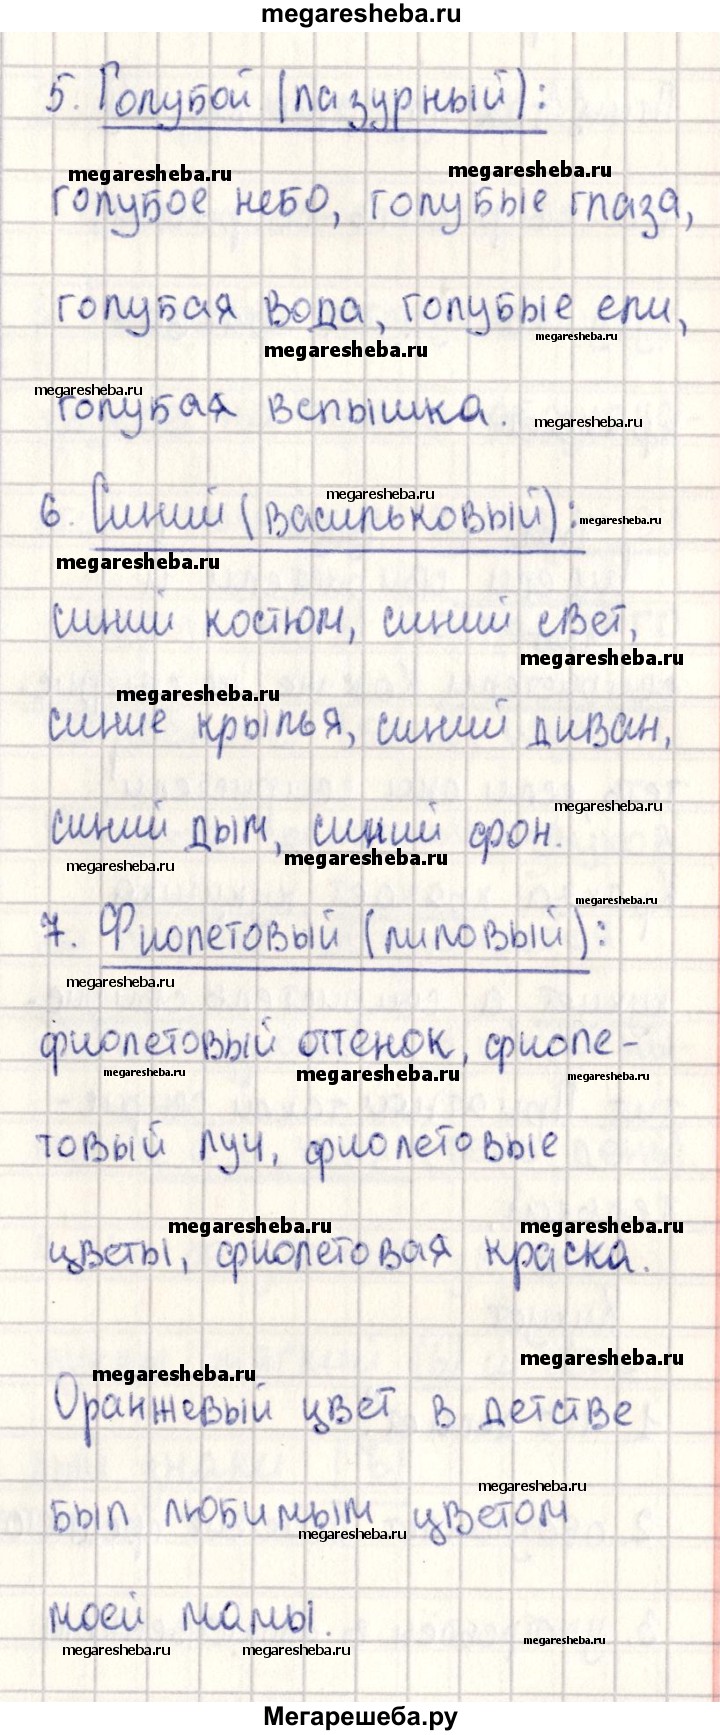 megaresheba.ru
5. Голубой (лазурный):
megaresheba.ru megaresheba.ru
голубое небо, голубые глаза,
голубая вода, голубые ели,
megaresheba.ru megaresheba.ru
megaresheba.ru
голубая вспышка.
megaresheba.ru
megaresheba.ru
6. Синий (васильковый):
megaresheba.ru
megaresheba.ru
синий костюм, синий свет,
megaresheba.ru
megaresheba.ru
синие крылья, синий диван,
megaresheba.ru
синий дым, синий фон.
megaresheba.ru megaresheba.ru
megaresheba.ru
7. Фиолетовый (лиловый):
megaresheba.ru
фиолетовый оттенок, фиоле-
megaresheba.ru megaresheba.ru megaresheba.ru
товый луч, фиолетовые
megaresheba.ru megaresheba.ru
цветы, фиолетовая краска.
megaresheba.ru megaresheba.ru
Оранжевый цвет в детстве
megaresheba.ru
был любимым цветом
megaresheba.ru
моей мамы.
megaresheba.ru megaresheba.ru megaresheba.ru
Мегарешеба.ру